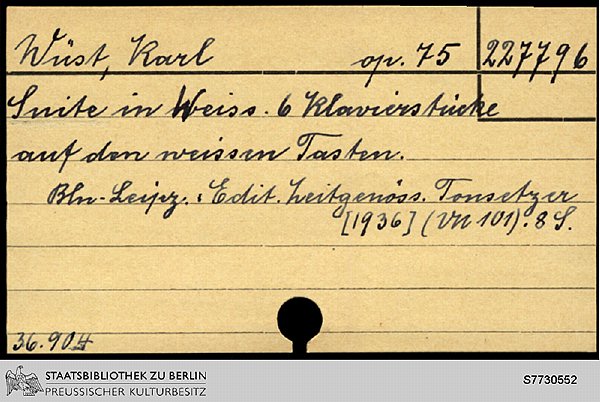 Wüst, Karl op. 75 227796
Suite in Weiss. 6 Klavierstücke
auf den weissen Tasten.
Bln-Leipz.: Edit. zeitgenöss. Tonsetzer
[1936] (VN 101). 8 S.
36.904
STAATSBIBLIOTHEK ZU BERLIN
PREUSSISCHER KULTURBESITZ
S7730552